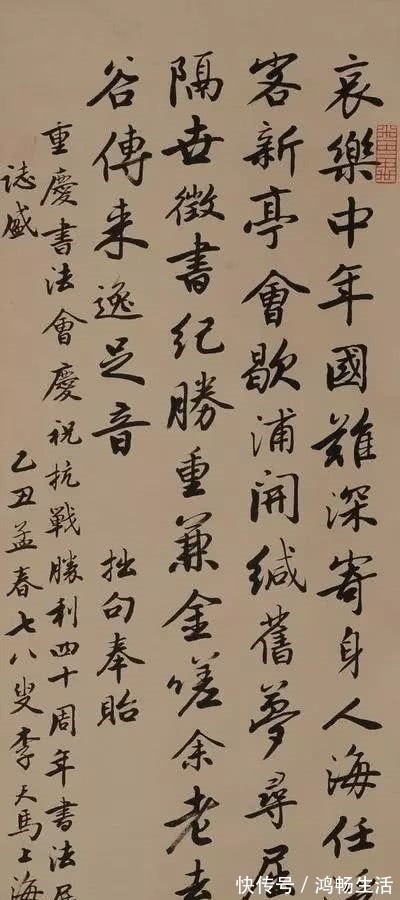 哀樂中年國難深寄身人海任
客新亭會歇浦開緘舊夢尋
隔世徵書紀勝重兼金嗟余老去
谷傳来逸足音 拙句奉貽
重慶書法會慶祝抗戰勝利四十周年書法展
誌盛 乙丑孟春七八叟李天馬上海
快传号/鸿畅生活